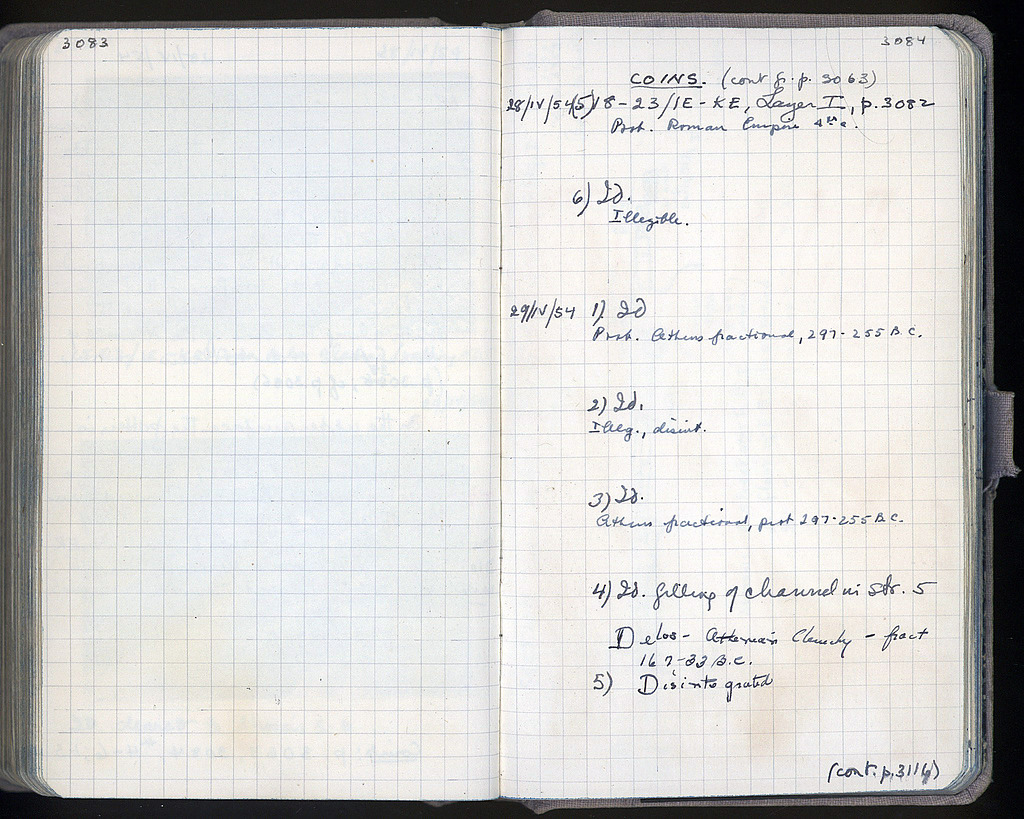 3083
3084
COINS. (cont fr. p. 3063)
28/IV/54 (5) 18-23/IE-KE, Layer I, p.3082
Prob. Roman Empire 4th c.
6) Id.
Illegible.
29/IV/54 1) Id
Prob. Athens fractional, 297-255 B.C.
2) Id.
Illeg., disint.
3) Id.
Athens fractional, prob 297-255 B.C.
4) Id. filling of channel in Str. 5
Delos - Athenian Cleruchy - fract
167-88 B.C.
5) Disintegrated
(cont. p. 3116)